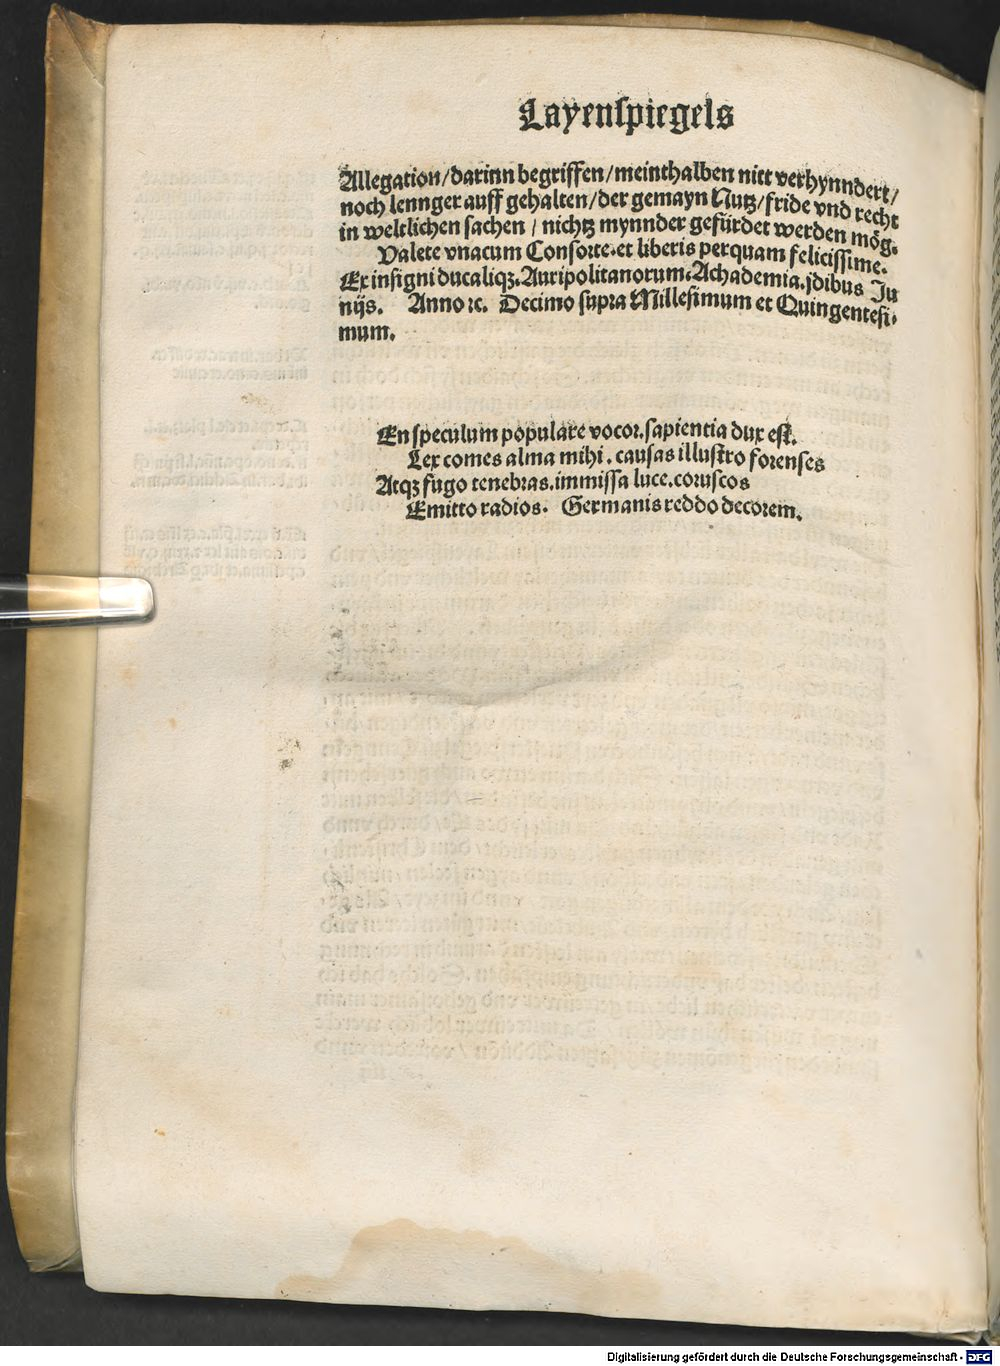 Layenſpiegels
Allegation/darinn begriffen/meinthalben nitt verhynndert/
noch lennger auff gehalten/der gemayn Nutz/fride vnd recht
in weltlichen ſachen / nichtz mynnder gefürdet werden mög.
Valete vnacum Conſorte.et liberis perquam feliciſſime.
Ex inſigni ducaliqꝫ.Auripolitanorum.Achademia.jdibus Ju
nijs. Anno ⁊c. Decimo ſupra Milleſimum et Quingenteſi-
mum.
En ſpeculum populare vocor.ſapientia dux eſt.
Lex comes alma mihi . cauſas illuſtro forenſes
Atqꝫ fugo tenebras.immiſſa luce.coruſcos
Emitto radios. Germanis reddo decorem.
Digitalisierung gefördert durch die Deutsche Forschungsgemeinschaft - DFG